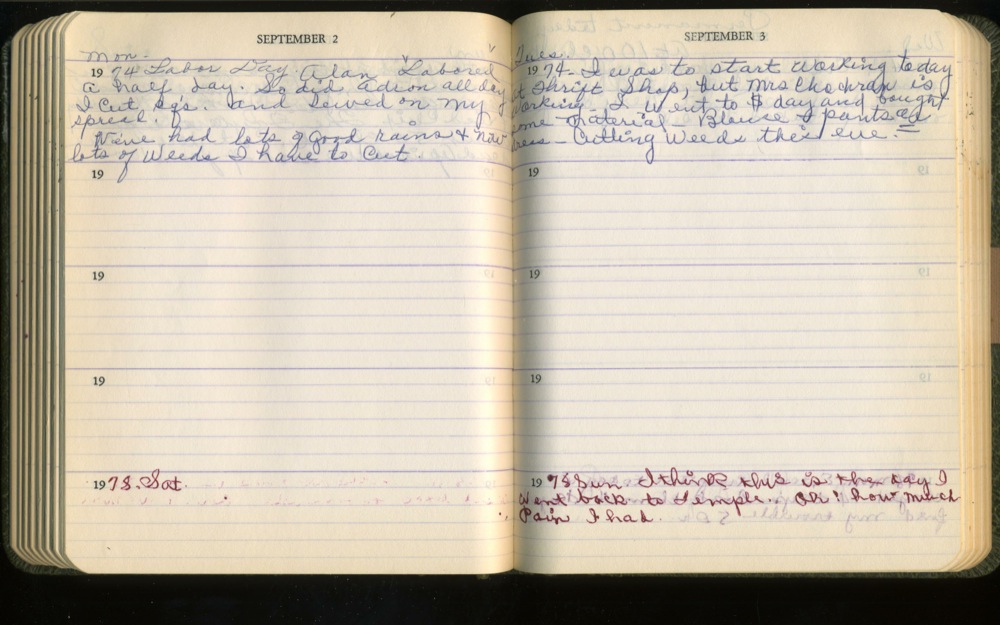 SEPTEMBER 2
Mon.
1974 Labor Day Alan Labored
a half day. So did all day
I cut sqs. and sewed on my
spread.
We've had lots of good rains & now
lots of Weeds I have to Cut.
19
19
19
1978. Sat.
SEPTEMBER 3
Tues
1974 - I was to start working today
at Thrift Shop, but Mrs is
Working - I went to $ day and bought
some material - Blouse & pants
dress - Cutting Weeds this eve. -
19
19
19
1978 Sun. I think this is the day I
Went back to Temple. Oh! how much
Pain I had.